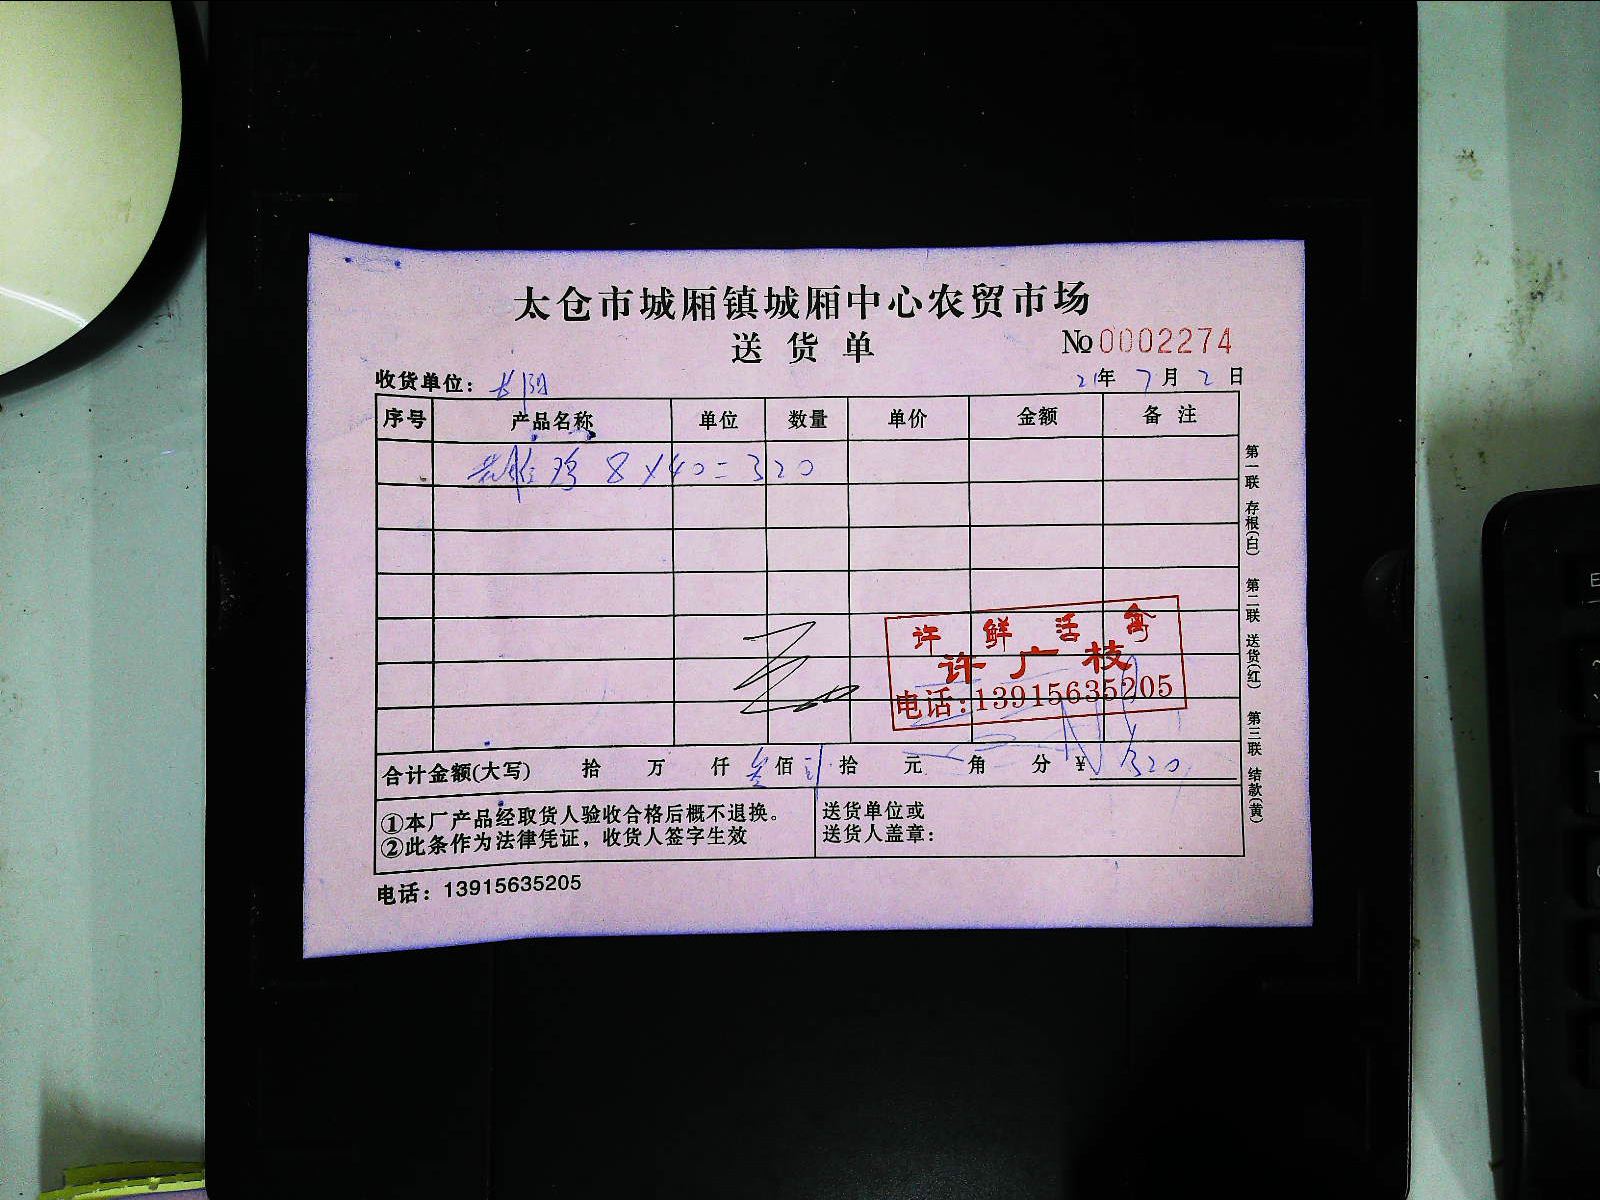 太仓市城厢镇城厢中心农贸市场
送货单
No 0002274
收货单位：
21年 7月 2日
序号 产品名称 单位 数量 单价 金额 备注
鸡 8×40=320
许鲜活禽
许广枝
电话:13915635205
合计金额(大写) 拾 万 仟 叁佰 贰拾 元 角 分 ¥ 320
①本厂产品经取货人验收合格后概不退换。
②此条作为法律凭证，收货人签字生效
送货单位或
送货人盖章：
电话：13915635205
第一联 存根(白) 第二联 送货(红) 第三联 结款(黄)